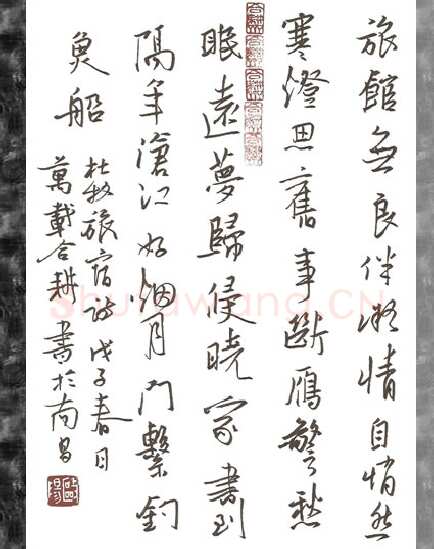 旅館無良伴凝情自悄然
寒澄思舊事斷鴈警愁
眠遠夢歸侵曉家書到
隔年滄江好烟月門繫釣
魚船
杜牧旅宿詩戊子春日
萬載合耕書於南昌
Shufawang.CN